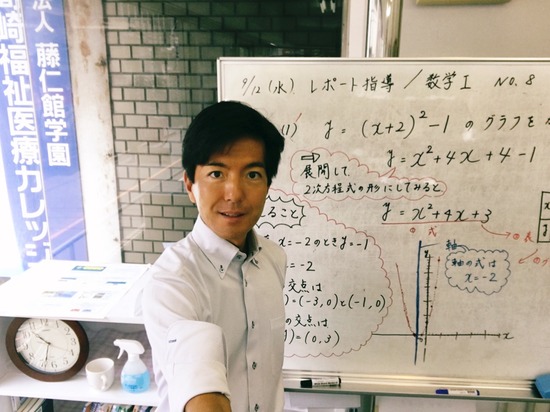 法人 藤仁館学園
崎福祉医療カレッジ
9/12 (水) レポート指導 / 数学I NO.8
(1) y = (x+2)² -1 のグラフを
y = x² + 4x + 4 - 1
⇒ 展開して
2次方程式の形にしてみると
y = x² + 4x + 3
① 式
② 表
軸
軸の式は
x = -2
x
ること
x = -2 のとき y = -1
= -2
交点は
) = (-3, 0) と (-1, 0)
の交点は
) = (0, 3)
x
y